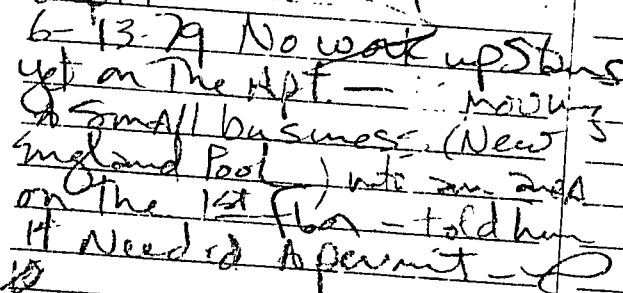 6-13-79 No work upstairs
yet on The Apt. — moving
A Small business (New
England Pool) into an area
on The 1st floor - told him
it Needed A permit -